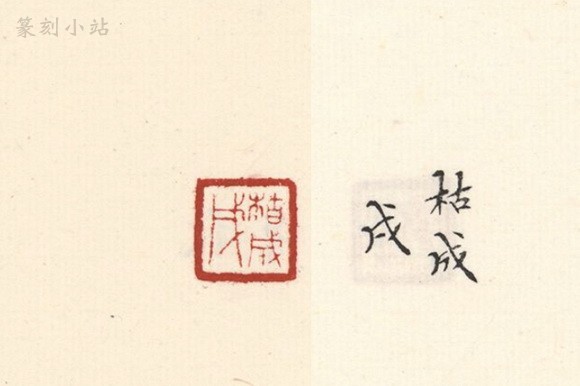 篆刻小站
枯成
戌
枯成
戌